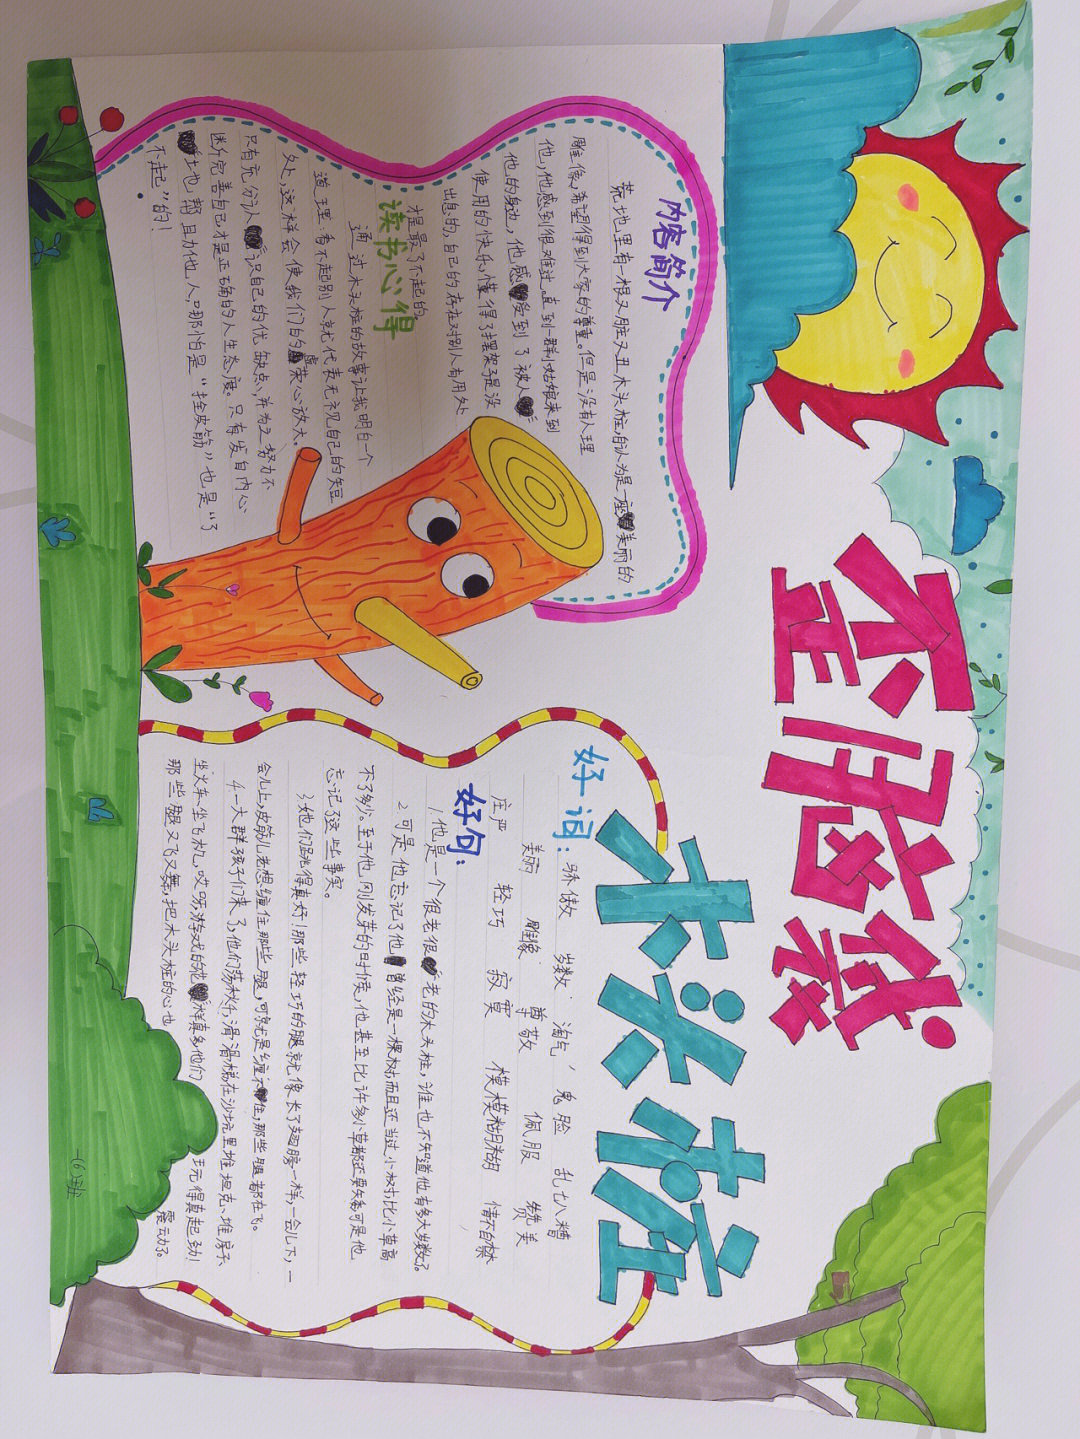 歪脑袋
木头桩
内容简介
荒地里有一根又脏又丑木头桩,自认为是一座美丽的
雕像,希望得到大家的尊重。但是没有人理
他,他感到很难过,直到一群小姑娘来到
他的身边,他感受到了被人
使用的快乐,懂得了摆架子是没
出息的,自己的存在对别人有用处
才是最了不起的。
读书心得
通过木头桩的故事让我明白一个
道理:看不起别人就代表无视自己的短
处,这样会使我们的虚荣心放大。
只有充分认识自己的优缺点,并为之努力不
断完善自己,才是正确的人生态度。只有发自内心
地帮助他人,哪怕是“拴皮筋”也是“了
不起”的!
好词:
骄傲 岁数 淘气 鬼脸 乱七八糟
美丽 雕像 尊敬 佩服 赞美
庄严 轻巧 寂寞 模模糊糊 情不自禁
好句:
1.他是一个很老很老的木头桩,谁也不知道他有多大岁数了。
2.可是他忘记了他曾经是一棵树,而且还当过小树,比小草高
不了多少。至于他刚发芽的时候,他甚至比许多小草都还要矮,可是他
忘记了这些事实。
3.她们跳得真好!那些轻巧的腿就像长了翅膀一样,一会儿下,一
会儿上,皮筋儿老想缠住那些腿,可就是缠不住,那些腿都在飞。
4.一大群孩子们来了,他们荡秋千,滑滑梯在沙坑里堆坦克、堆房子、
坐火车、坐飞机,哎呀,游戏的花样真多,他们玩得真起劲!
那些腿又飞又舞,把木头桩的心也震动了。
一(6)班